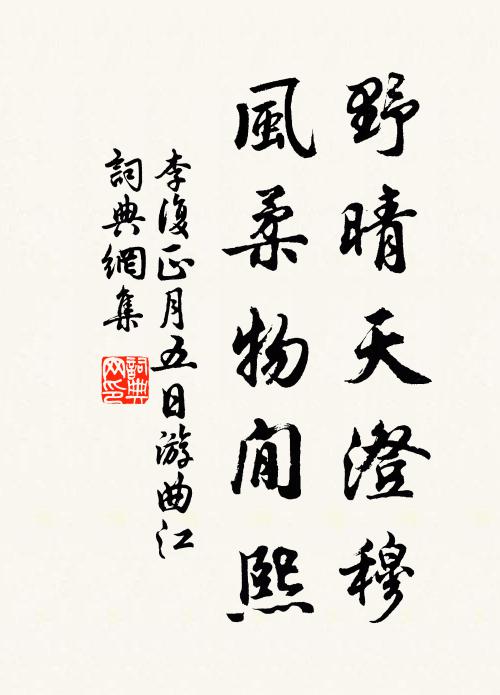 野晴天澄穆
風柔物閒熙
李復正月五日游曲江
詞典網集
詞典网印